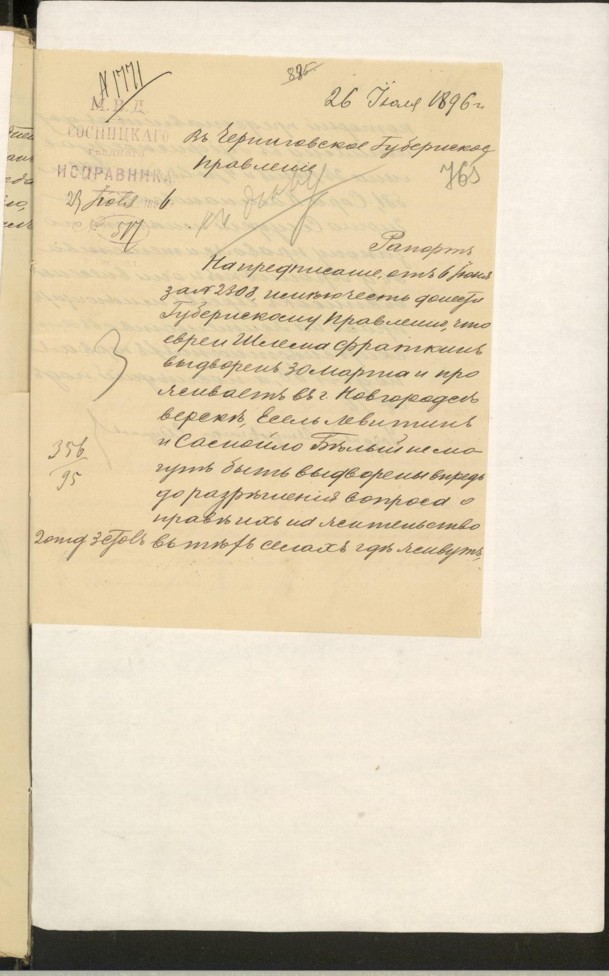 N 1771
886
26 Июля 1896 г
М. В. Д.
СОСНИЦКАГО
ИСПРАВНИКА
6
517
Въ Черниговское Губернское
Правленіе
763
къ дѣлу
Рапортъ
На предписаніе, отъ 6 Іюня
за N 2308, имѣю честь донести
Губернскому Правленію, что
еврей Шлема Фраткинъ
выдворенъ 30 Марта и про
живаетъ въ г Новгородсѣ
верскѣ, Есель Левитинъ
и Самойло Бѣлый не мо
гутъ быть выдворены впредь
до разрѣшенія вопроса о
правѣ ихъ на жительство
въ тѣхъ селахъ гдѣ живутъ,
356
95
2 отд 3 стол